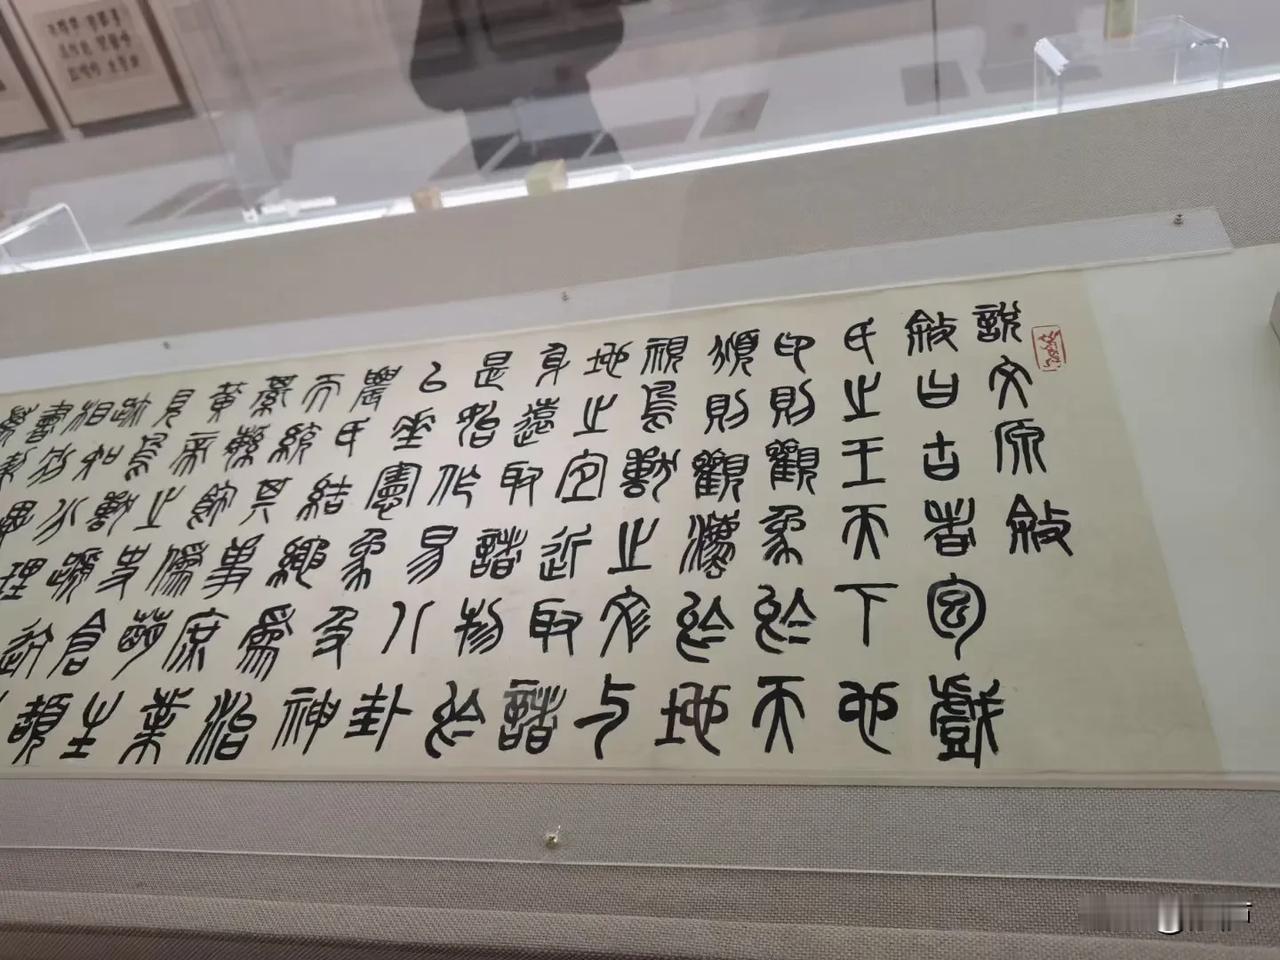 說文原敘
敘曰古者戲
氏之王天下也
卬則觀象於天
頫則觀灋於地
視鳥獸之文與
地之宜近取諸
身遠取諸物於
是始作易八卦
以垂憲象及神
農氏結繩爲治
而統其事庶業
綦緐飾僞萌生
黃帝之史倉頡
見鳥獸蹏迒之
跡知分理
相
書